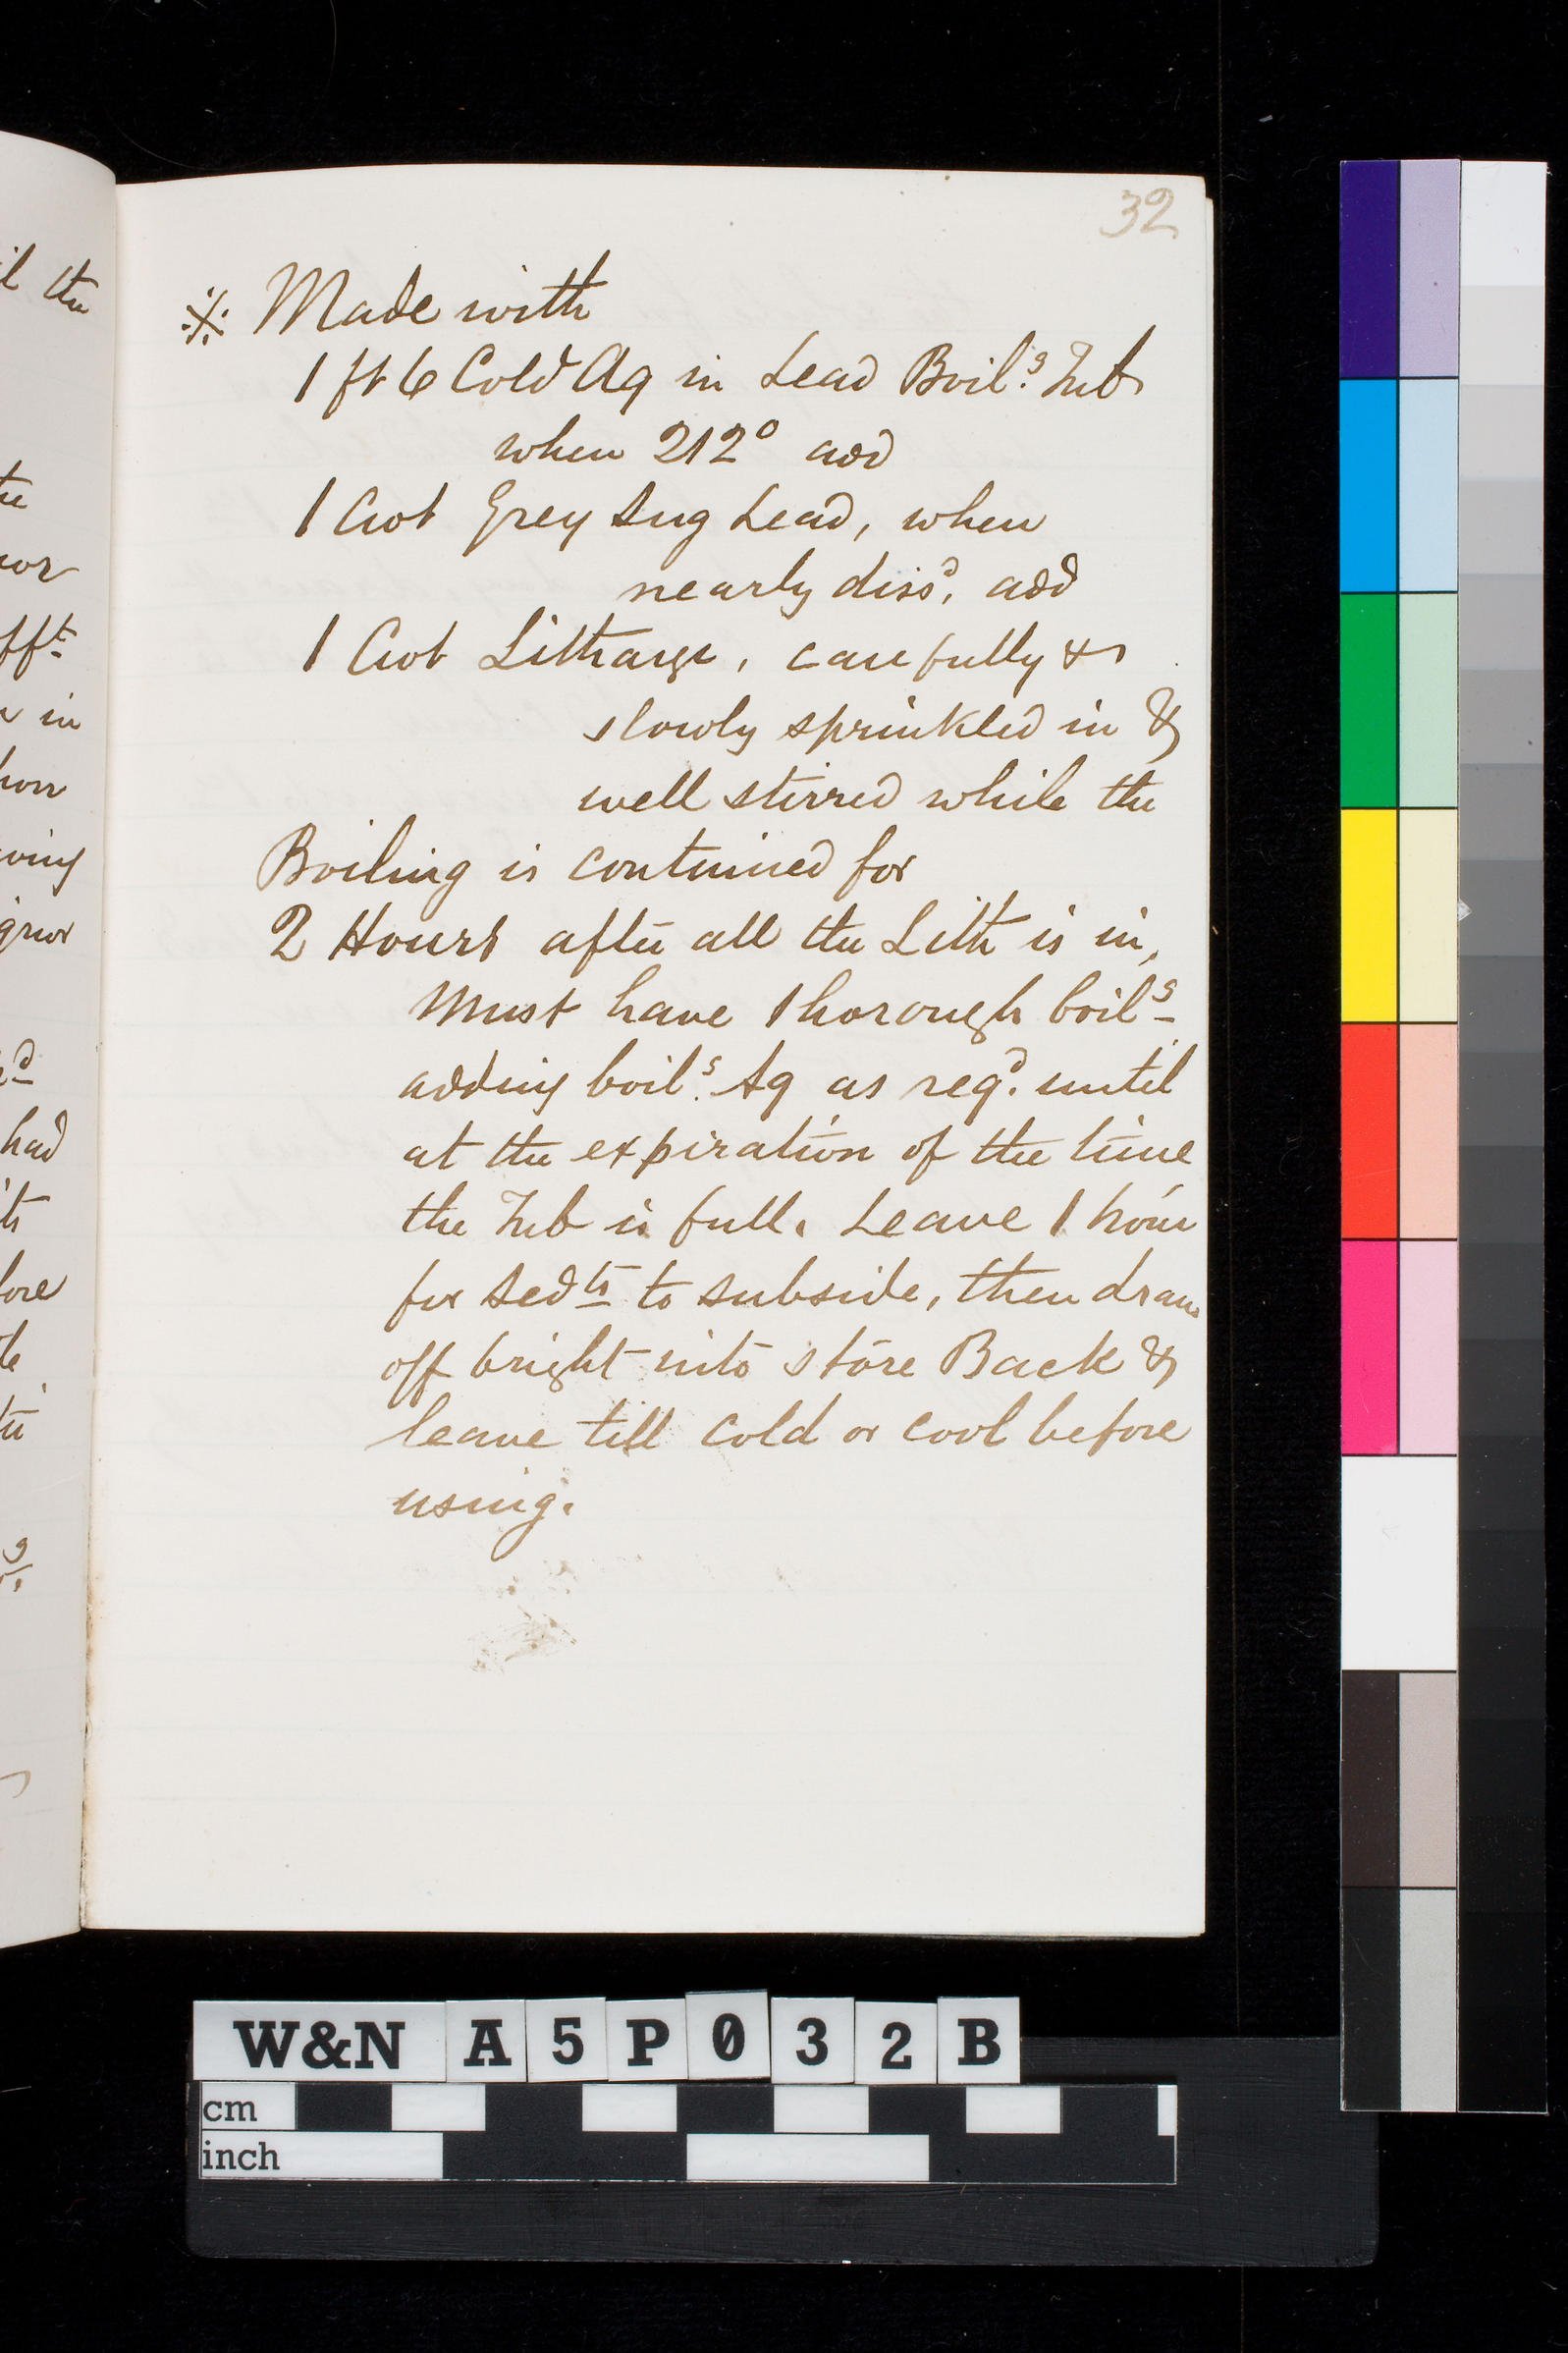 32
※ Made with
1 ft 6 Cold Aq in Lead Boil.g Tub
when 212° add
1 Cwt Grey Sug Lead, when
nearly diss.d, add
1 Cwt Litharge, carefully &
slowly sprinkled in &
well stirred while the
Boiling is continued for
2 Hours after all the Lith is in,
Must have thorough boilg
adding boil.g Aq as req.d until
at the expiration of the time
the Tub is full. Leave 1 hour
for Sedts to subside, then draw
off bright into store Back &
leave till cold or cool before
using.
il the
in
had
W&N A5P032B
cm
inch